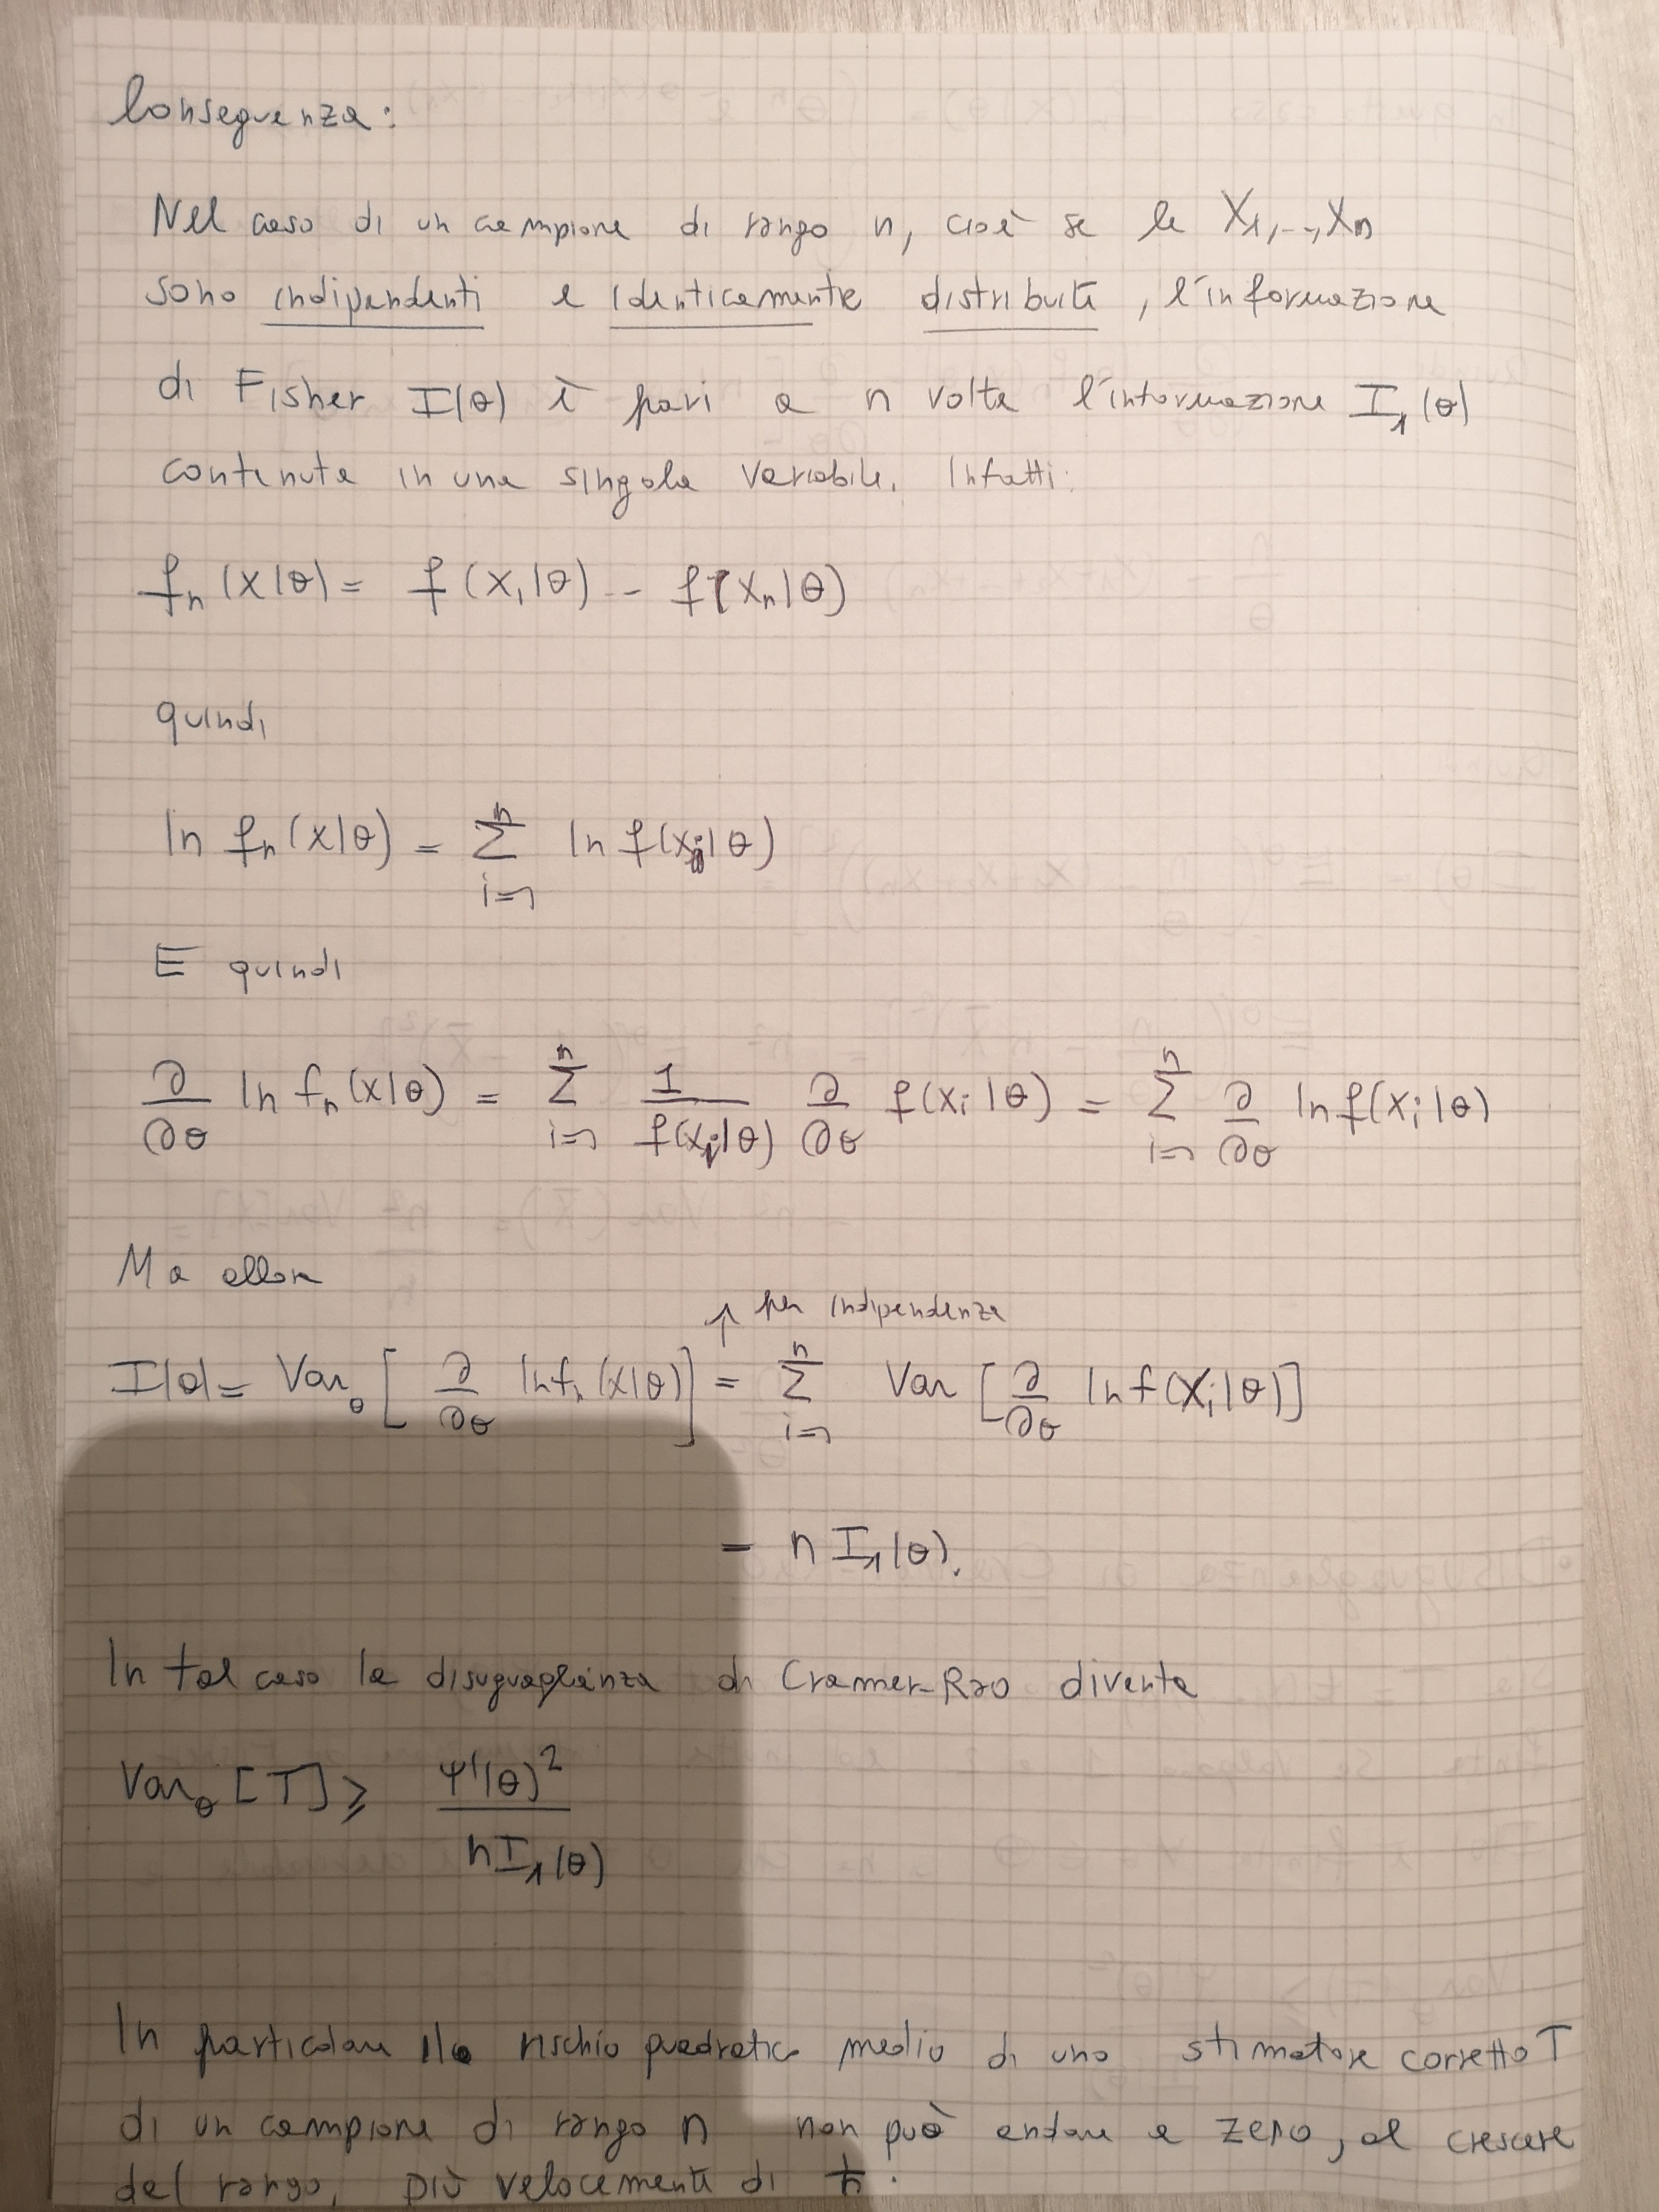 Conseguenza:
Nel caso di un campione di rango n, cioè se le X₁,..,Xn
sono indipendenti e identicamente distribuite, l'informazione
di Fisher I(θ) è pari a n volte l'informazione I₁(θ)
contenuta in una singola variabile. Infatti:
fₙ(x|θ) = f(x₁|θ) -- f(xₙ|θ)
quindi
ln fₙ(x|θ) = Σ_{i=1}^{n} ln f(xᵢ|θ)
E quindi
∂/∂θ ln fₙ(x|θ) = Σ_{i=1}^{n} 1/f(xᵢ|θ) ∂/∂θ f(xᵢ|θ) = Σ_{i=1}^{n} ∂/∂θ ln f(xᵢ|θ)
Ma allora
↑ per indipendenza
I(θ) = Var_θ [∂/∂θ ln fₙ(x|θ)] = Σ_{i=1}^{n} Var [∂/∂θ ln f(Xᵢ|θ)]
= n I₁(θ).
In tal caso la disuguaglianza di Cramer-Rao diventa
Var_θ [T] ≥ ψ'(θ)² / n I₁(θ)
In particolare il rischio quadratico medio di uno stimatore corretto T
di un campione di rango n non può andare a zero, al crescere
del rango, più velocemente di 1/n.